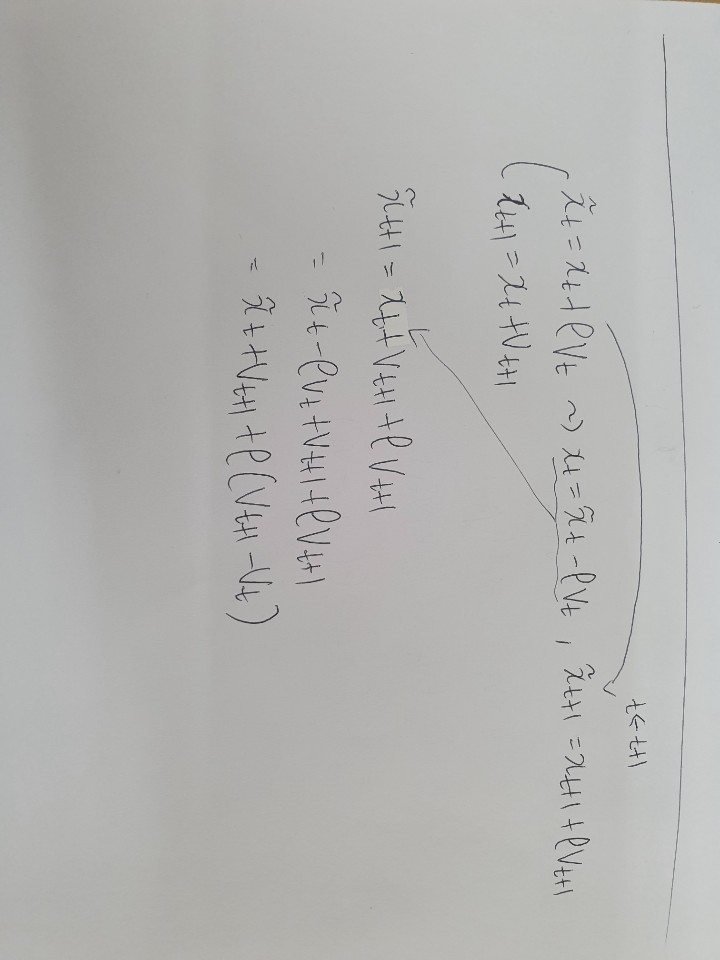 t←t+1
x̃_t = x_t + ρv_t ~> x_t = x̃_t - ρv_t , x̃_{t+1} = x_{t+1} + ρv_{t+1}
x_{t+1} = x_t + v_{t+1}
x̃_{t+1} = x_t + v_{t+1} + ρv_{t+1}
= x̃_t - ρv_t + v_{t+1} + ρv_{t+1}
= x̃_t + v_{t+1} + ρ(v_{t+1} - v_t)